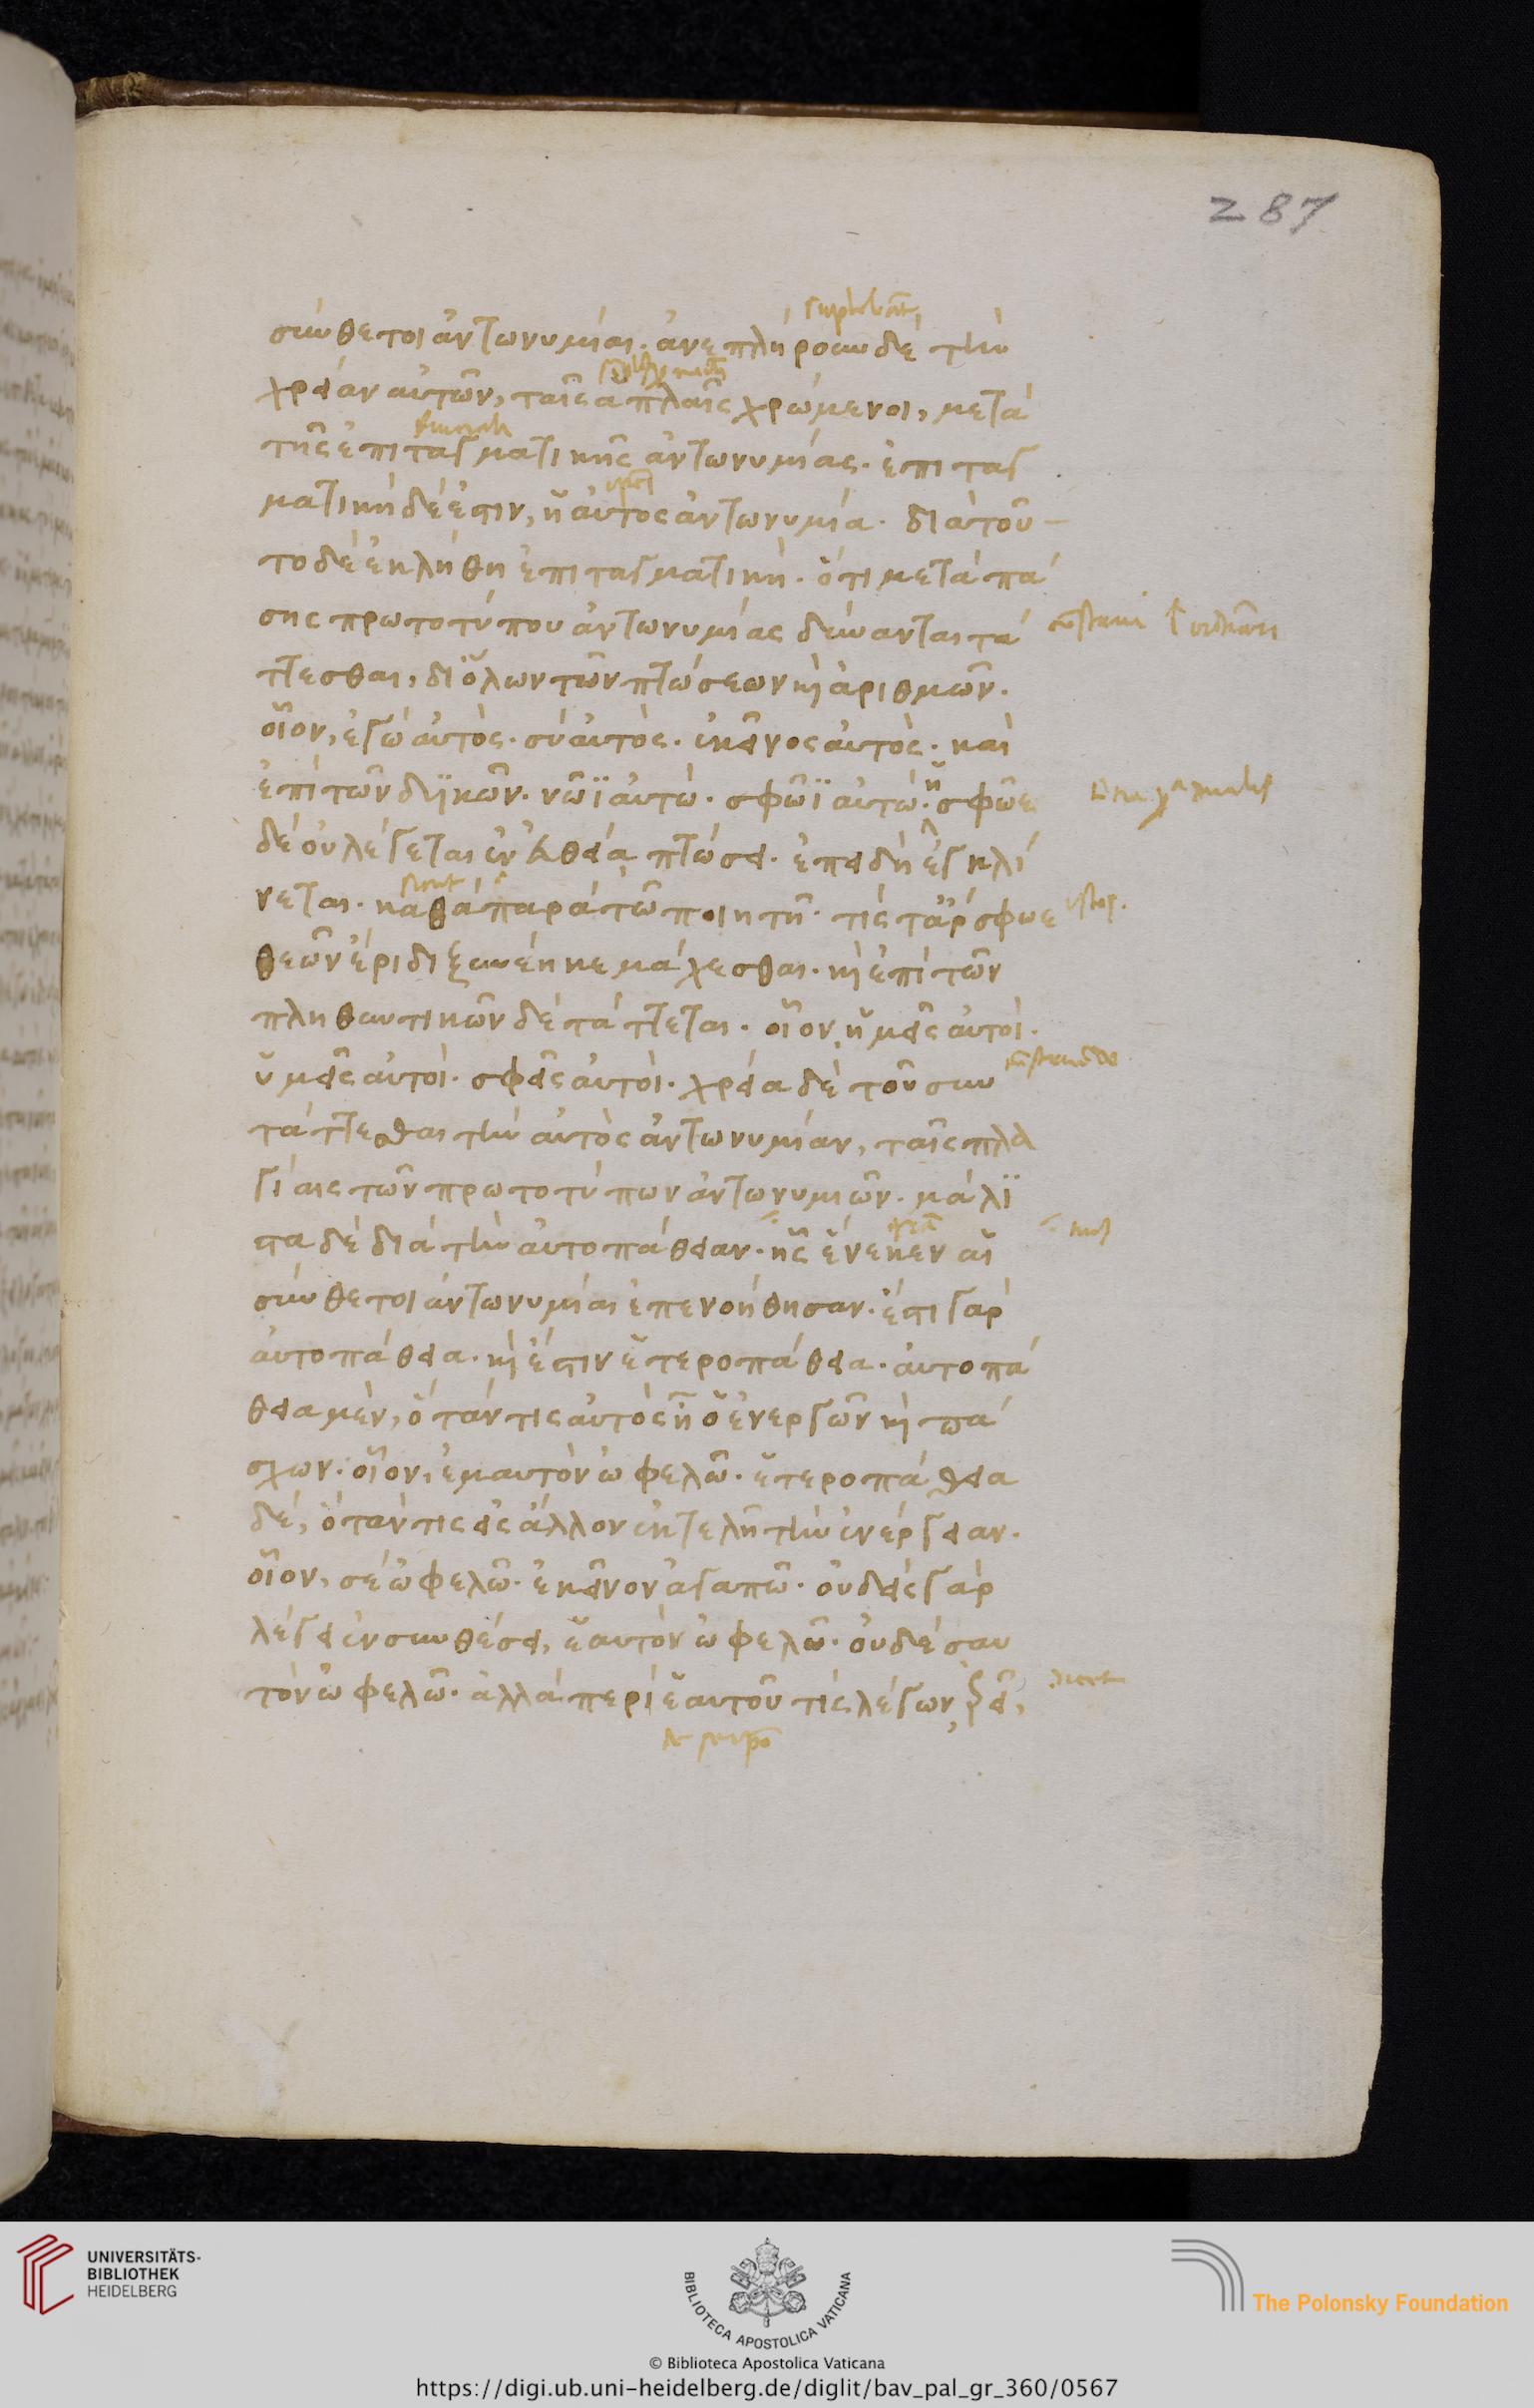 287
σύνθετοι ἀντωνυμίαι. ἀνεπλήρουν δὲ τὴν
χρείαν αὐτῶν, ταῖς ἁπλαῖς χρώμενοι, μετὰ
τῆς ἐπιταγματικῆς ἀντωνυμίας. ἐπιταγ
ματικὴ δέ ἐστιν, ἡ αὐτὸς ἀντωνυμία. διὰ τοῦ-
το δὲ ἐκλήθη ἐπιταγματική. ὅτι μετὰ πά
σης πρωτοτύπου ἀντωνυμίας δύνανται τά
ττεσθαι, δι ὅλων τῶν πτώσεων κὶ ἀριθμῶν.
οἷον, ἐγὼ αὐτὸς. σὺ αὐτὸς. ἐκεῖνος αὐτὸς. καὶ
ἐπὶ τῶν δυϊκῶν. νῶϊ αὐτώ. σφῶϊ αὐτώ. ἡ σφῶε
δὲ οὐ λέγεται ἐν εὐθείᾳ πτώσει. ἐπειδὴ ἐγκλί
νεται. καθὰ παρὰ τῷ ποιητῇ. τίς τἄρ σφωε
θεῶν ἔριδι ξυνέηκε μάχεσθαι. κὶ ἐπὶ τῶν
πληθυντικῶν δὲ τάττεται. οἷον, ἡμεῖς αὐτοὶ.
ὑμεῖς αὐτοὶ. σφεῖς αὐτοὶ. χρεία δὲ τοῦ συν
τάττεσθαι τὴν αὐτὸς ἀντωνυμίαν, ταῖς πλα
γίαις τῶν πρωτοτύπων ἀντωνυμιῶν. μάλι
στα δὲ διὰ τὴν αὐτοπάθειαν. ἧς ἕνεκεν αἱ
σύνθετοι ἀντωνυμίαι ἐπενοήθησαν. ἔστι γὰρ
αὐτοπάθεια. κὶ ἔστιν ἑτεροπάθεια. αὐτοπά
θεια μὲν, ὅταν τις αὐτὸς ᾖ ὁ ἐνεργῶν κὶ πά
σχων. οἷον, ἐμαυτὸν ὠφελῶ. ἑτεροπάθεια
δέ, ὅταν τις εἰς ἄλλον ἐκτελῇ τὴν ἐνέργειαν.
οἷον, σὲ ὠφελῶ. ἐκεῖνον ἀγαπῶ. οὐδεὶς γὰρ
λέγει ἐν συνθέσει, ἑαυτὸν ὠφελῶ. οὐδὲ σαυ
τὸν ὠφελῶ. ἀλλὰ περὶ ἑαυτοῦ τίς λέγων,
UNIVERSITÄTS-
BIBLIOTHEK
HEIDELBERG
BIBLIOTECA APOSTOLICA VATICANA
The Polonsky Foundation
© Biblioteca Apostolica Vaticana
https://digi.ub.uni-heidelberg.de/diglit/bav_pal_gr_360/0567